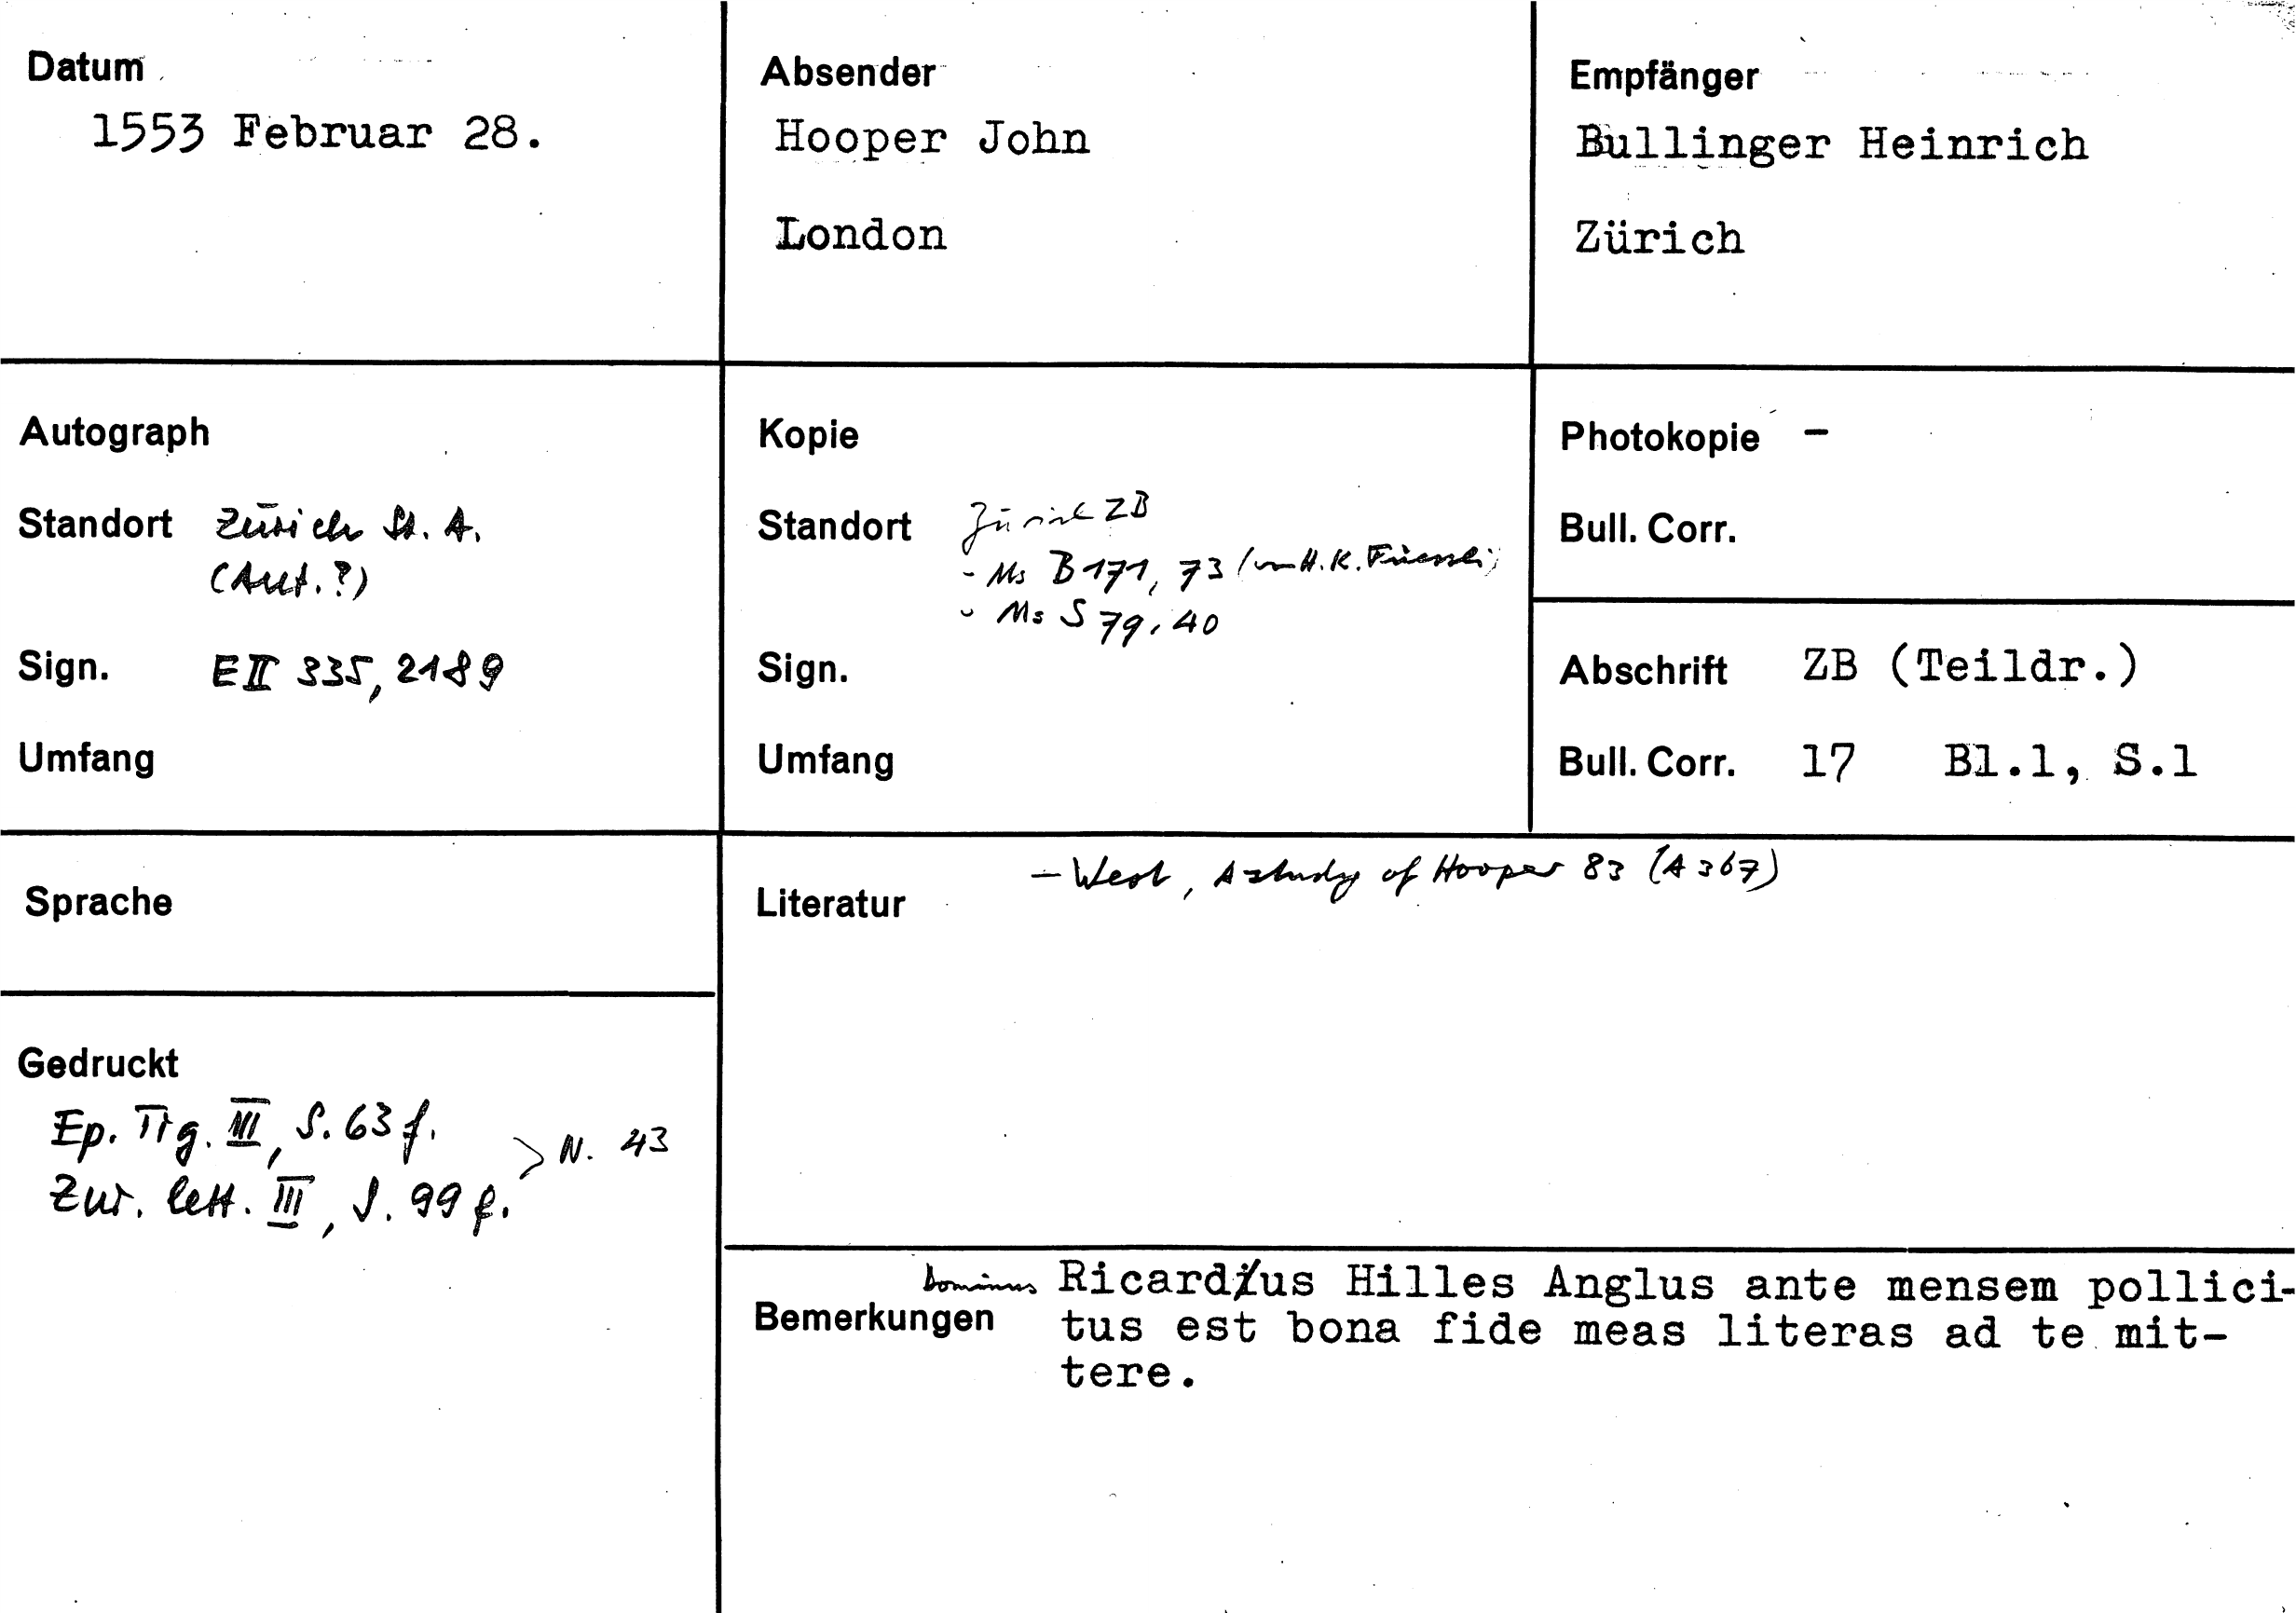 Datum
1553 Februar 28.
Absender
Hooper John
London
Empfänger
Bullinger Heinrich
Zürich
Autograph
Standort Zürich St. A.
(Aut.?)
Sign. E II 335, 2189
Umfang
Kopie
Standort Zürich ZB
- Ms B 171, 73 (von H. K. Füessli)
- Ms S 79, 40
Sign.
Umfang
Photokopie -
Bull. Corr.
Abschrift ZB (Teildr.)
Bull. Corr. 17 Bl.1, S.1
Sprache
Gedruckt
Ep. Tig. III, S. 63 f.
> N. 43
Zur. lett. III, S. 99 f.
Literatur
- West, A study of Hooper 83 (A 367)
Bemerkungen
Dominus Ricardus Hilles Anglus ante mensem pollici-
tus est bona fide meas literas ad te mit-
tere.